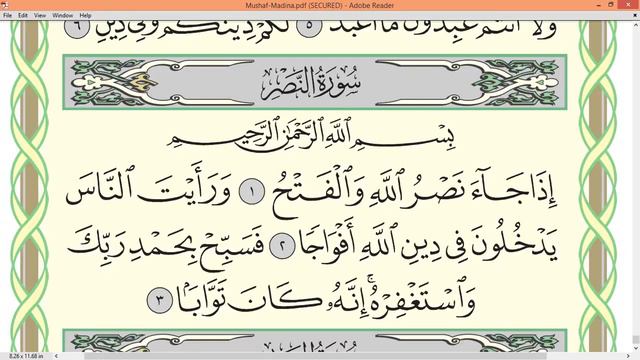 Mushaf-Madina.pdf (SECURED) - Adobe Reader
File Edit View Window Help
وَلَا أَنتُمْ عَٰبِدُونَ مَا أَعْبُدُ ٥ لَكُمْ دِينُكُمْ وَلِيَ دِينِ ٦
سُورَةُ النَّصْرِ
بِسْمِ ٱللَّهِ ٱلرَّحْمَٰنِ ٱلرَّحِيمِ
إِذَا جَآءَ نَصْرُ ٱللَّهِ وَٱلْفَتْحُ ١ وَرَأَيْتَ ٱلنَّاسَ
يَدْخُلُونَ فِى دِينِ ٱللَّهِ أَفْوَاجًا ٢ فَسَبِّحْ بِحَمْدِ رَبِّكَ
وَٱسْتَغْفِرْهُ ۚ إِنَّهُۥ كَانَ تَوَّابًۢا ٣
8.26 x 11.68 in